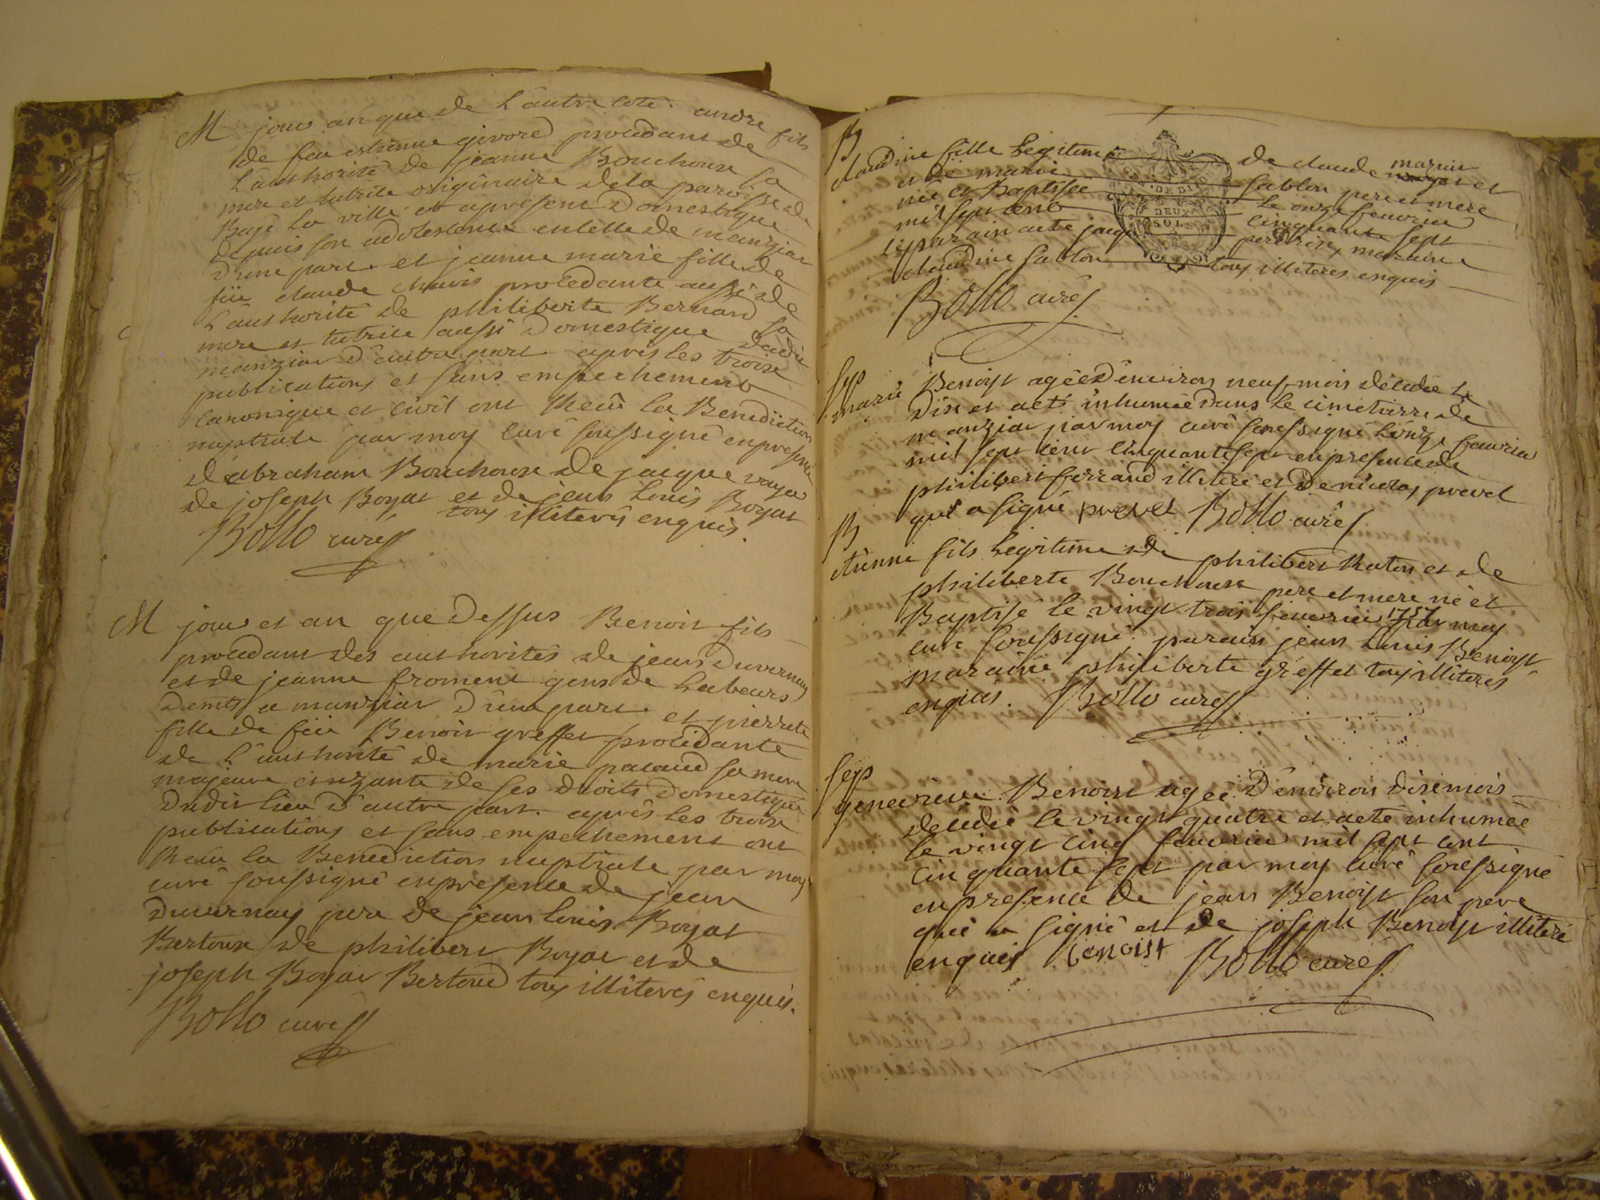 M jour an que de l'autre coté. andre fils
de feu estienne givord procedant de
l'authorité de jeanne Bouchoux sa
mere et tutrice originaire de la paroisse de
Bagé la ville et apresent domestique
depuis son adolescence en cette de manziat
d'une part. et jeanne marie fille de
feu claude chavis procedante aussi de
l'authorité de philiberte Bernard sa
mere et tutrice aussi domestique dudit
manziat d'autre part. après les troise
publications et sans empechement
canonique et civil ont recu la Benediction
nuptiale par moy curé soussigné en presence
d'abraham Bouchoux de jacque
de joseph Boyat et de jean Louis Boyat
tous illiterés enquis.
Bollo curé
M jour et an que dessus Benoit fils
procedant des authorités de jean duvernay
et de jeanne froment gens de Labeurs
demts a manziat d'une part. et pierrete
fille de feu Benoit greffet procedante
de l'authorité de marie pacaud sa mere
majeure de ses droits domestique
dudit lieu d'autre part. après les troise
publications et sans empechement ont
recu la Benediction nuptiale par moy
curé soussigné en presence de jean
duvernay pere de jean louis Boyat
Bertoux de philibert Boyat et de
joseph Boyat Bertoud tous illiterés enquis.
Bollo curé
B
claudine fille legitime de claude mazuir et
et de marie sablon pere et mere
née et Baptisée le onze fevrier
mil sept cent cinquante sept
le parain a eté jacq mazuir
claudine sablon tous illiteres enquis
Bollo curé
Sep
marie Benoist agée d'environ neuf mois décédée le
dix et a eté inhumée dans le cimetiere de
manziat par moy curé soussigné l'onze fevrier
mil sept cent cinquante sept en presence de
philibert ferrand illiteré et de nicolas prevel
qui a signé prevel Bollo curé
B
etienne fils legitime de philibert Raton et de
philiberte Bouchoux pere et mere né et
Baptisé le vingt trois fevrier 1757 par moy
curé soussigné. parain jean Louis Benoist
maraine philiberte greffet tous illiteres
enquis. Bollo curé
Sep
genevieve Benoist agée d'environ dixemois
decedée le vingt quatre et a eté inhumée
le vingt cinq fevrier mil sept cent
cinquante sept par moy curé soussigné
en presence de jean Benoist son pere
qui a signé et de joseph Benoist illiteré
enquis Benoist Bollo curé